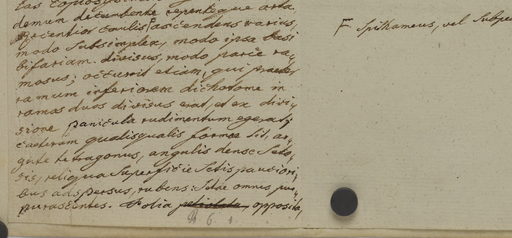 demum decumbente repentique orta
recentior caulis ascendens varius,
modo subsimplex, modo ipsa basi
bifariam divisus, modo parce ra-
mosus; occurrit etiam, qui praeter
ramum inferiorem dichotome in
ramos duos divisus erat, et ex divi-
sione paniculæ rudimentum egerat;
cæterum qualisqualis formæ sit, ar-
gute tetragonus, angulis dense seto-
sis, reliqua superficie setis paucioris-
bus adspersus, rubens: setæ omnes pur-
purascentes. Folia petiolata, opposita,
F Spithameus, vel Subpe
B 6 1